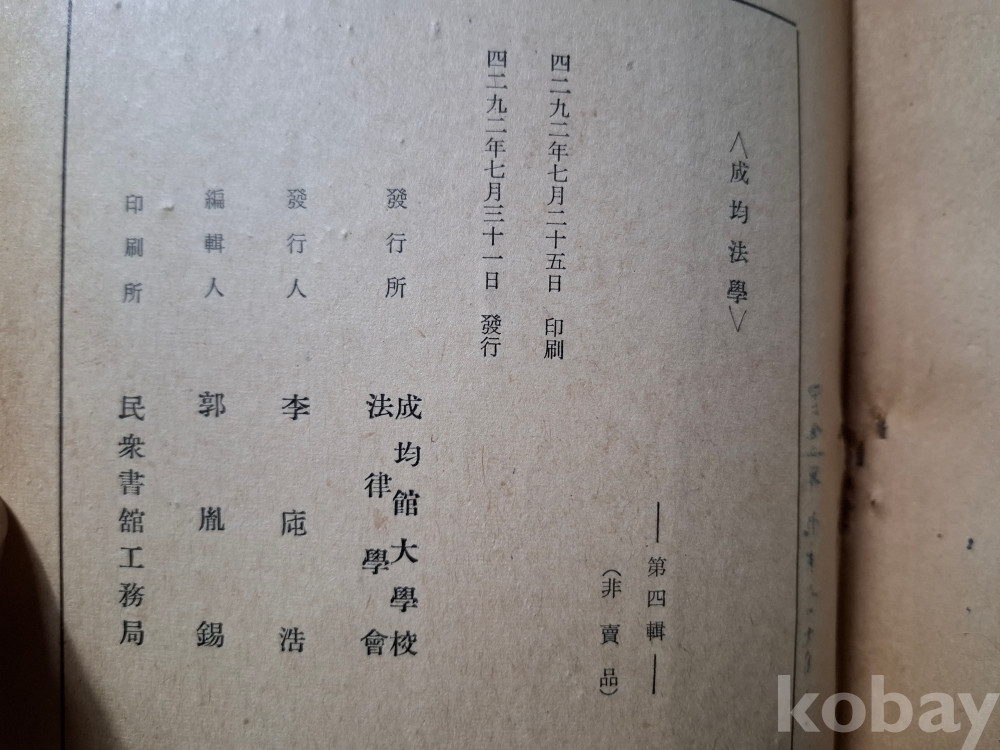 <成均法學>
―第四輯―
(非賣品)
四二九二年七月二十五日 印刷
四二九二年七月三十一日 發行
發行所 成均館大學校
法律學會
發行人 李庉浩
編輯人 郭胤錫
印刷所 民衆書舘工務局
kobay